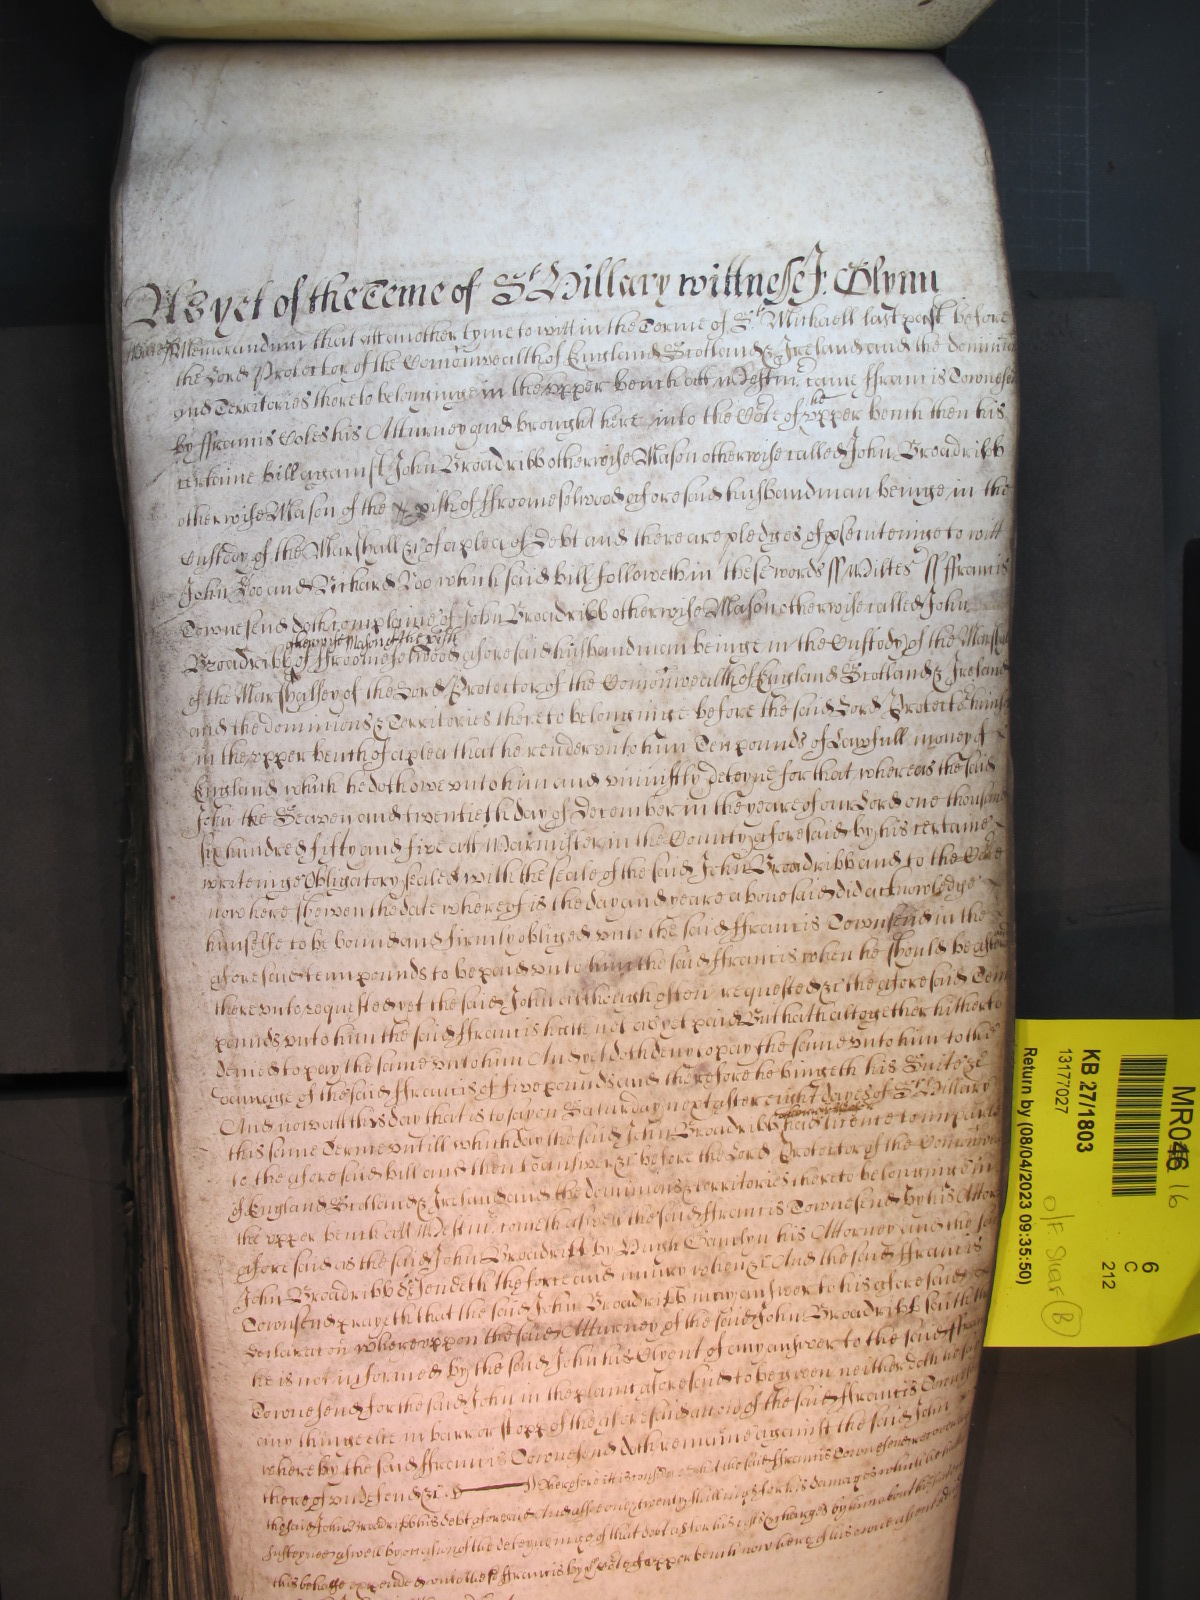 As yet of the Terme of St Hillary wittnes J: Glynn
Memorandum that att another tyme to witt in the Terme of St Michaell last past before
the Lord Protector of the Comonwealth of England Scotland & Ireland and the dominions
and Territories thereto belonginge in the upper bench att Westmr came ffrancis Townesend
by ffrancis Coles his Atturney and brought here into the Cort of the upper bench then his
certaine bill against John Broadribb otherwise Mason otherwise called John Broadribb
otherwise Mason of the pish of ffroomeselwood aforesaid husbandman beinge in the
Custody of the Marshall &c of a plea of Debt and there are pledges of psecuteinge to witt
John Doo and Richard Roo which said bill followeth in these words ss Wiltes ss ffrancis
Townesend doth complaine of John Broadribb otherwise Mason otherwise called John
otherwise Mason of the pish
Broadribb of ffroomeselwood aforesaid husbandman beinge in the Custody of the Marshall
of the Marshalsey of the Lord Protector of the Comonwealth of England Scotland & Ireland
and the dominions & Territories thereto belonginge before the said Lord Protector
in the upper bench of a plea that he render unto him Ten pounds of Lawfull money of
England which he doth owe unto him and uniustly deteyne for that whereas the said
John the Seaven and twentieth day of December in the yeare of our Lord one thousand
six hundred fifty and five att Warmister in the County aforesaid by his certaine
writeinge Obligatory sealed with the seale of the said John Broadribb and to the Corte
now here shewen the date whereof is the day and yeare abovesaid did acknowledge
himselfe to be bound and firmly obliged unto the said ffrancis Townsend in the
aforesaid tenn pounds to be paid unto him the said ffrancis when he should be
thereunto requested yet the said John although often requested &c the aforesaid Tenn
pounds unto him the said ffrancis hath not as yet paid But hath altogether hitherto
denied to pay the same unto him And yet doth deny to pay the same unto him to the
damage of the said ffrancis of five pounds and therefore he bringeth his Suite &c
And now att this day that is to say on Saturday next after eight dayes of St Hillary
this same Terme untill which day the said John Broadribb had licence to imparle
to the aforesaid bill and then to answer &c before the Lord Protector of the Comonwealth
of England Scotland & Ireland and the dominions & territories thereto belonginge in
the upper bench att Westmr cometh aswell the said ffrancis Townesend by his Attorney
aforesaid as the said John Broadribb by Hugh his Attorney and the said
John Broadribb defendeth the force and iniury when &c And the said ffrancis
Townsend prayeth that the said John Broadribb may answer to his aforesaid
declaration whereuppon the said Atturney of the said John Broadribb saith that
he is not informed by the said John his Clyent of any answer to the said ffrancis
Townesend for the said John in the plaint aforesaid to be given neither doth he say
any thinge else in barr or stopp of the aforesaid accon of the said ffrancis Townsend
whereby the said ffrancis Townesend doth remaine against the said John
thereof undefended &c Therefore it is considered that the said ffrancis Townesend recover against
the said John Broadribb his debt aforesaid And alsoe one & twenty shillings for his damages which he hath
susteyned aswell by occasion of the deteyninge of that debt as for his costs & charges by him about his suite in
this behalfe expended unto the sd ffrancis by the Corte of upper bench now here of his owne assent